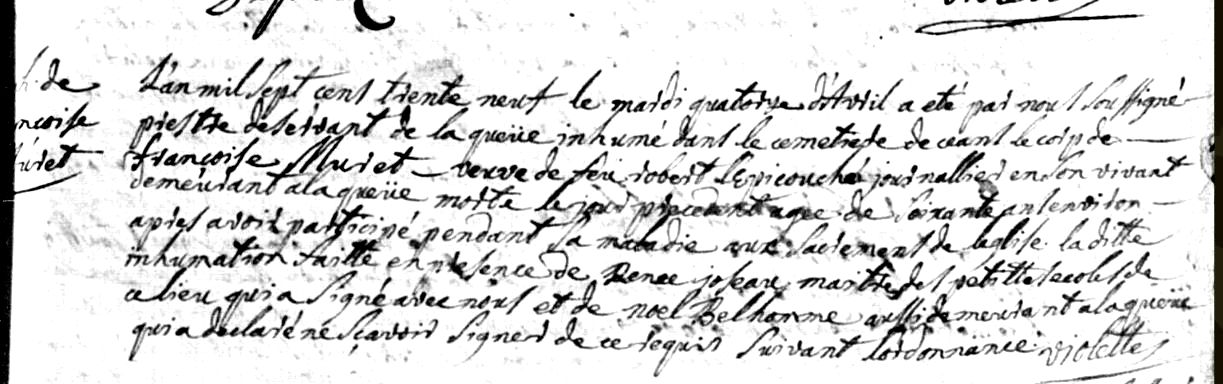 de
ncoise
uret
L'an mil sept cent trente neuf le mardi quatorze d'Avril a eté par nous soussigné
prestre deservant de la queüe inhumé dans le cemetiere de ceans le corp de
francoise Muret veuve de feu robert journallier en son vivant
demeurant a la queüe morte le jour precedent agee de soixante ans environ
apres avoir participé pendant sa maladie aux sacrement de leglise la ditte
inhumation faitte en presence de Rene joseau maitre des petittes ecoles de
ce lieu qui a signé avec nous et de noel Belhomme aussi demeurant a la queüe
qui a declaré ne sçavoir signer de ce requis suivant l'ordonnance violette